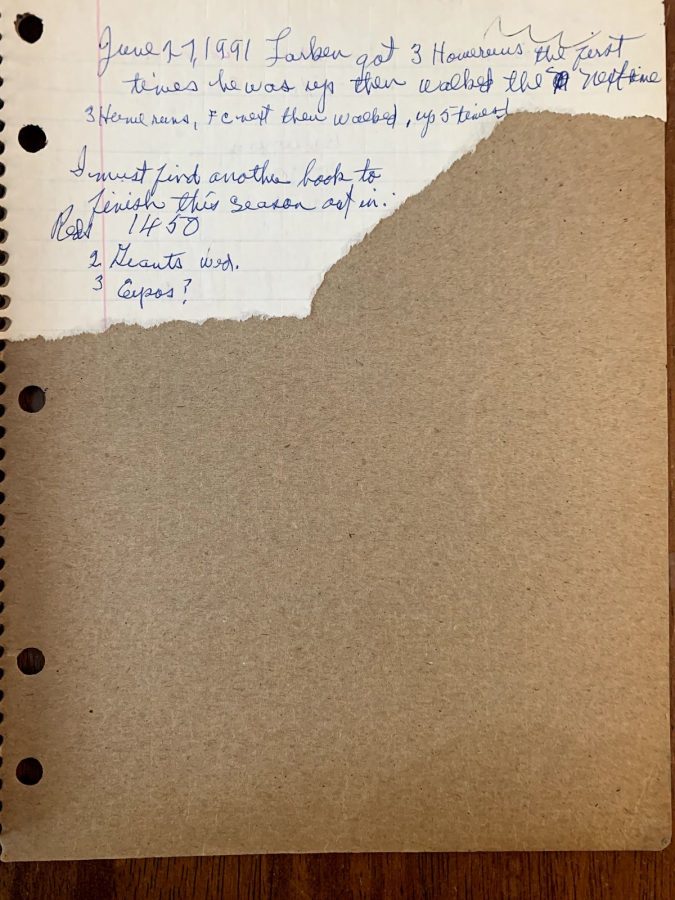 June 27, 1991 Larken got 3 Homeruns the first
times he was up then walked the next time
3 Home runs, F C next then walked, up 5 times!
I must find another book to
finish this season out in.
Reds 1450
2 Geants wed.
3 Expos?